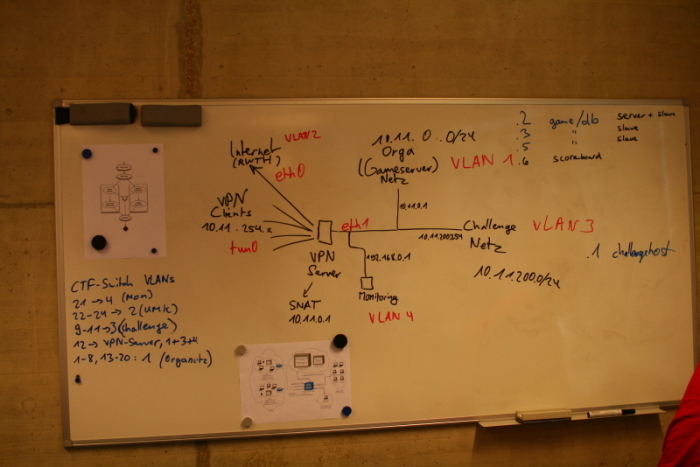 .2 game/db server + slave
.3 " slave
.5 " slave
.6 scoreboard
Internet
(RWTH)
VLAN 2
eth0
10.11.0.0/24
Orga
(Gameserver)
Netz
VLAN 1
VPN
Clients
10.11.254.x
tun0
eth1
10.11.0.1
10.11.200.254
Challenge
Netz
VLAN 3
10.11.200.0/24
.1 challengehost
VPN
Server
192.168.0.1
Monitoring
VLAN 4
SNAT
10.11.0.1
CTF-Switch VLANs
21 → 4 (Mon)
22-24 → 2
9-11 → 3 (challenge)
12 → VPN-Server, 1+3+4
1-8, 13-20 : 1 (Organetz)